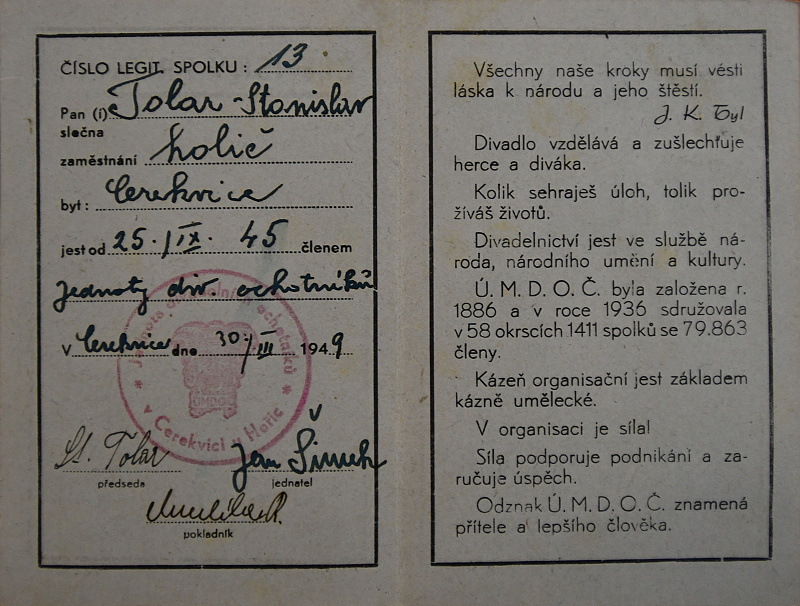 ČÍSLO LEGIT. SPOLKU : 13
Pan (í) Tolar Stanislav
slečna
zaměstnání holič
byt : Cerekvice
jest od 25. IX. 45 členem
Jednoty div. ochotníků
v Cerekvice dne 30. III 1949
Jednota divadelních ochotníků
v Cerekvici u Hořic
ÚMDOČ
St. Tolar Jan Šimek
předseda jednatel
pokladník
Všechny naše kroky musí vésti
láska k národu a jeho štěstí.
J. K. Tyl
Divadlo vzdělává a zušlechťuje
herce a diváka.
Kolik sehraješ úloh, tolik pro-
žíváš životů.
Divadelnictví jest ve službě ná-
roda, národního umění a kultury.
Ú. M. D. O. Č. byla založena r.
1886 a v roce 1936 sdružovala
v 58 okrscích 1411 spolků se 79.863
členy.
Kázeň organisační jest základem
kázně umělecké.
V organisaci je síla!
Síla podporuje podnikání a za-
ručuje úspěch.
Odznak Ú. M. D. O. Č. znamená
přítele a lepšího člověka.